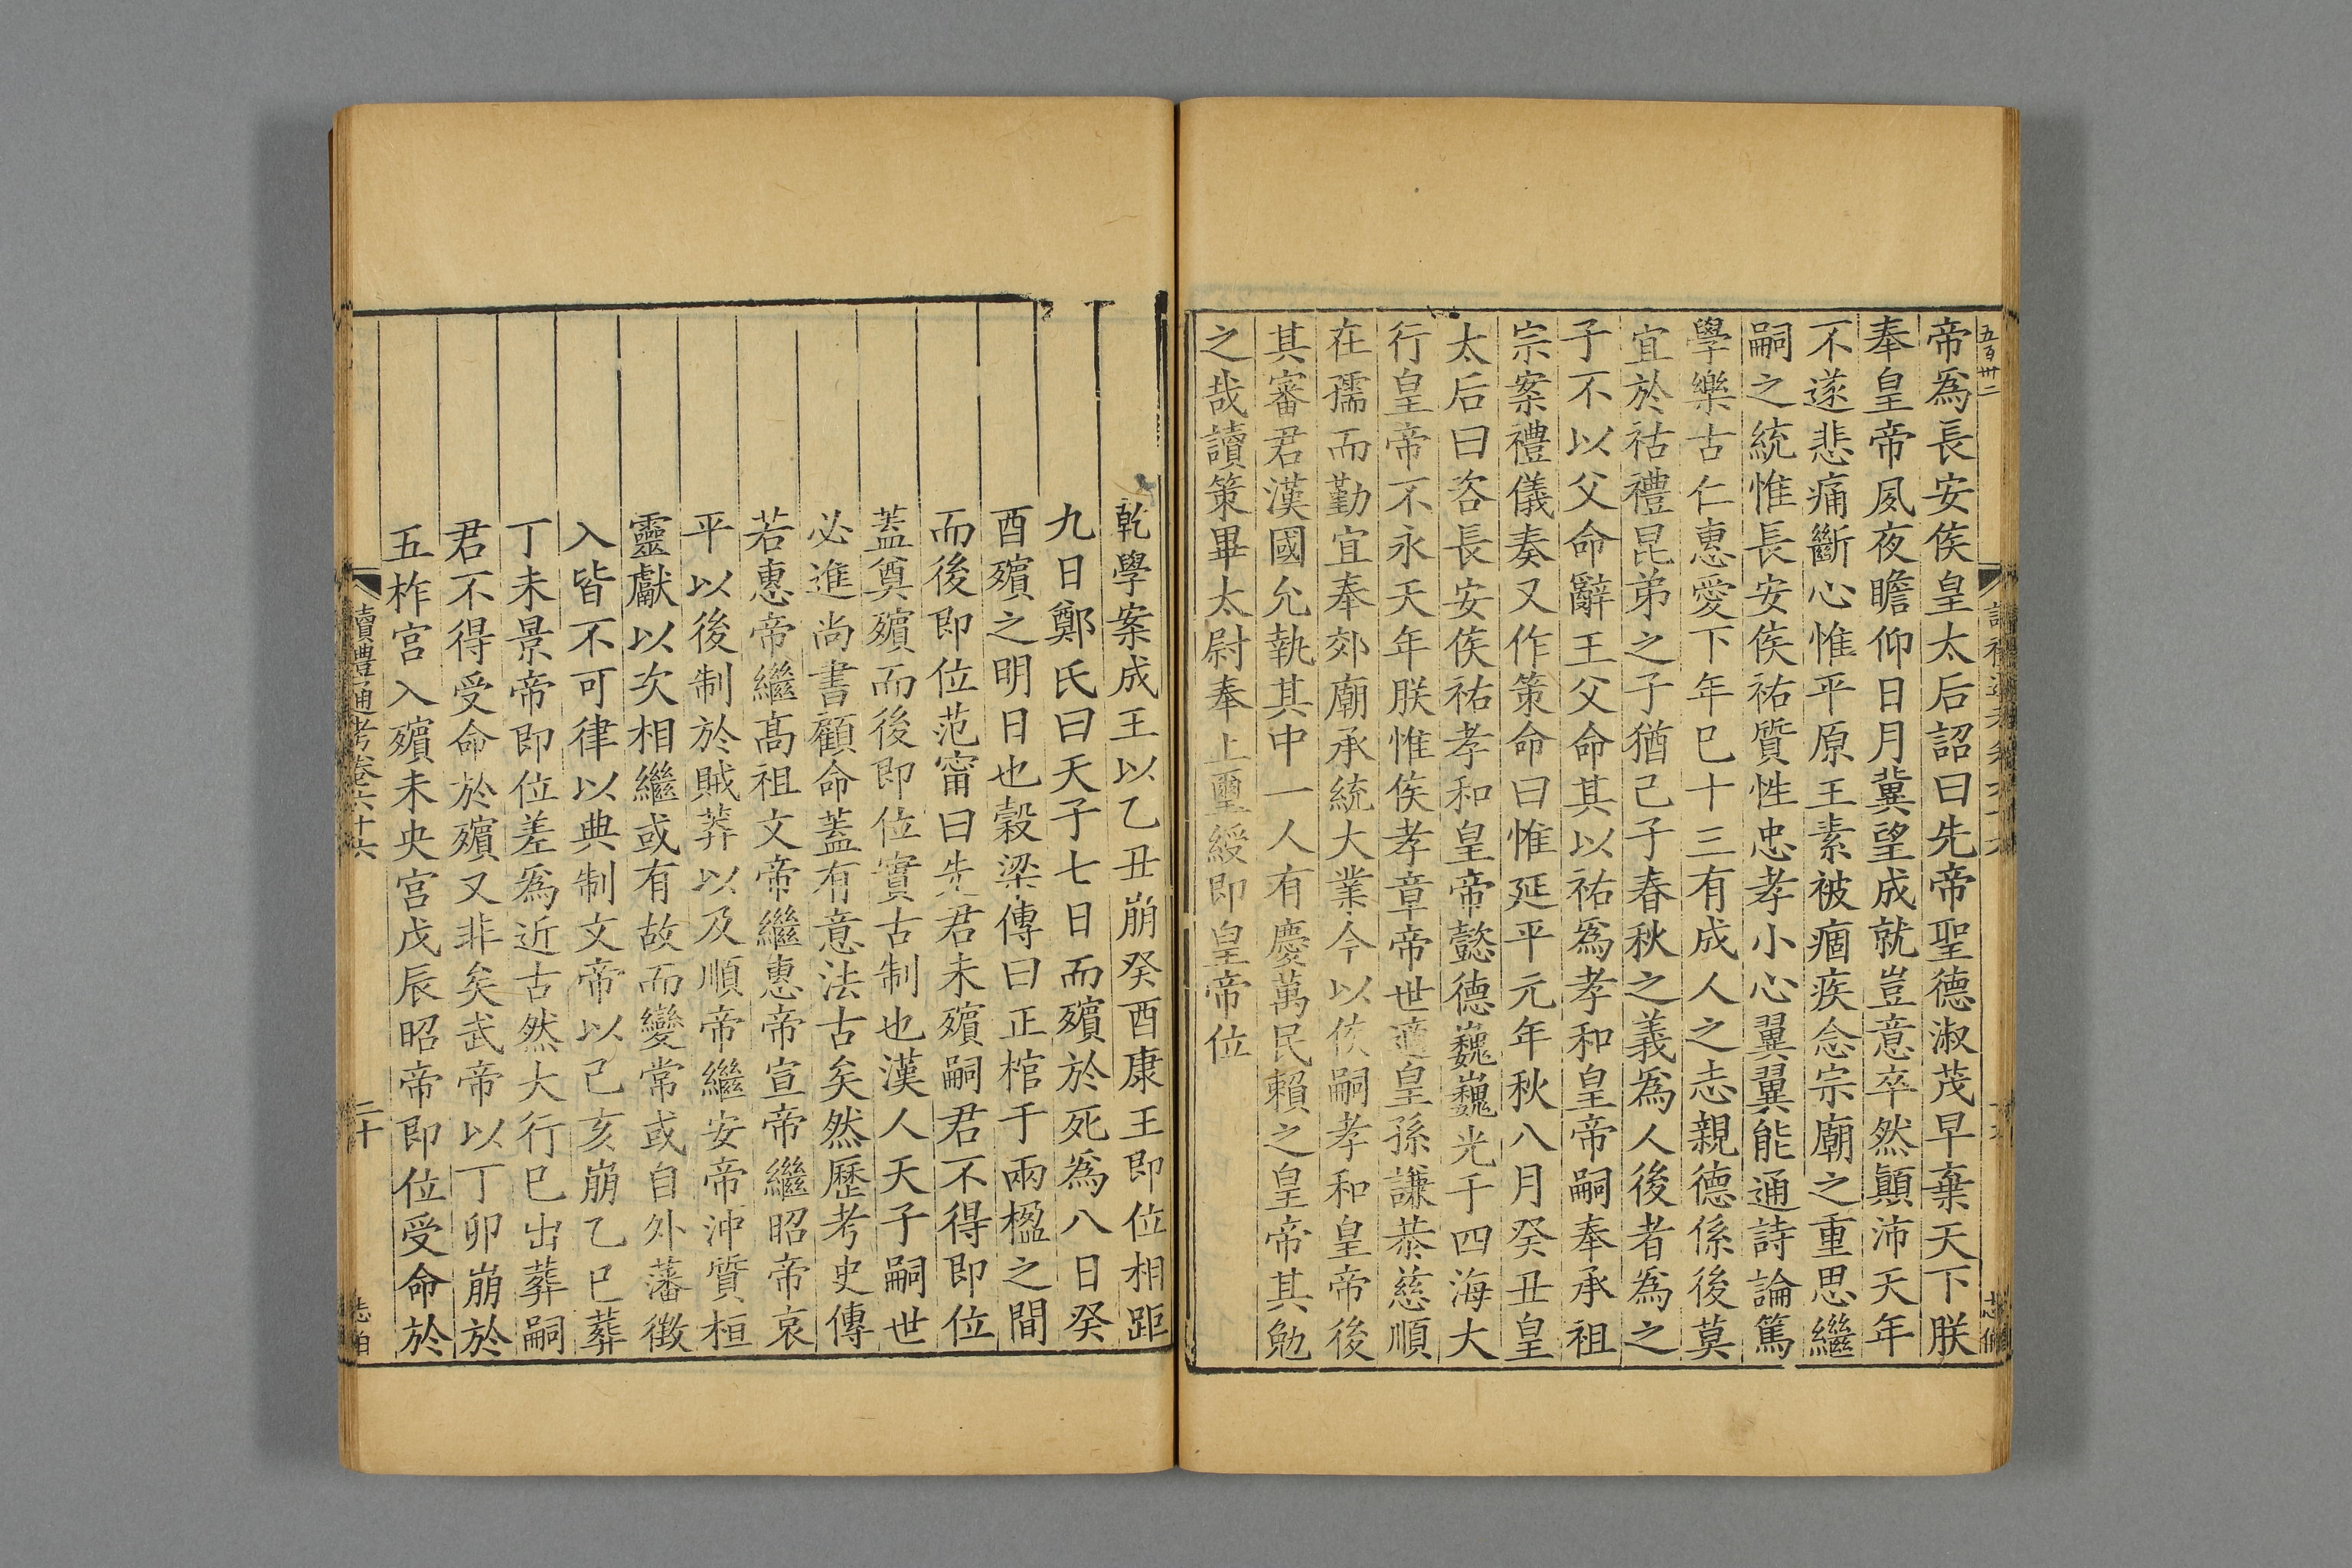 五百卅二
帝爲長安侯皇太后詔曰先帝聖德淑茂早棄天下朕
奉皇帝夙夜瞻仰日月冀望成就豈意卒然顚沛天年
不遂悲痛斷心惟平原王素被痼疾念宗廟之重思繼
嗣之統惟長安侯祐質性忠孝小心翼翼能通詩論篤
學樂古仁惠愛下年巳十三有成人之志親德係後莫
宜於祜禮昆弟之子猶己子春秋之義爲人後者為之
子不以父命辭王父命其以祐爲孝和皇帝嗣奉承祖
宗案禮儀奏又作策命曰惟延平元年秋八月癸丑皇
太后曰咨長安侯祐孝和皇帝懿德巍巍光于四海大
行皇帝不永天年朕惟侯孝章帝世適皇孫謙恭慈順
在孺而勤宜奉郊廟承統大業今以侯嗣孝和皇帝後
其審君漢國允執其中一人有慶萬民賴之皇帝其勉
之哉讀策畢太尉奉上璽綬即皇帝位
乾學案成王以乙丑崩癸酉康王即位相距
九日鄭氏曰天子七日而殯於死爲八日癸
酉殯之明日也穀梁傳曰正棺于兩楹之間
而後即位范甯曰先君未殯嗣君不得即位
蓋奠殯而後即位實古制也漢人天子嗣世
必進尚書顧命蓋有意法古矣然歷考史傳
若惠帝繼高祖文帝繼惠帝宣帝繼昭帝哀
平以後制於賊莽以及順帝繼安帝沖質桓
靈獻以次相繼或有故而變常或自外藩徵
入皆不可律以典制文帝以己亥崩乙巳葬
丁未景帝即位差爲近古然大行巳出葬嗣
君不得受命於殯又非矣武帝以丁卯崩於
五柞宮入殯未央宮戊辰昭帝即位受命於
讀禮通考卷六十六
二十